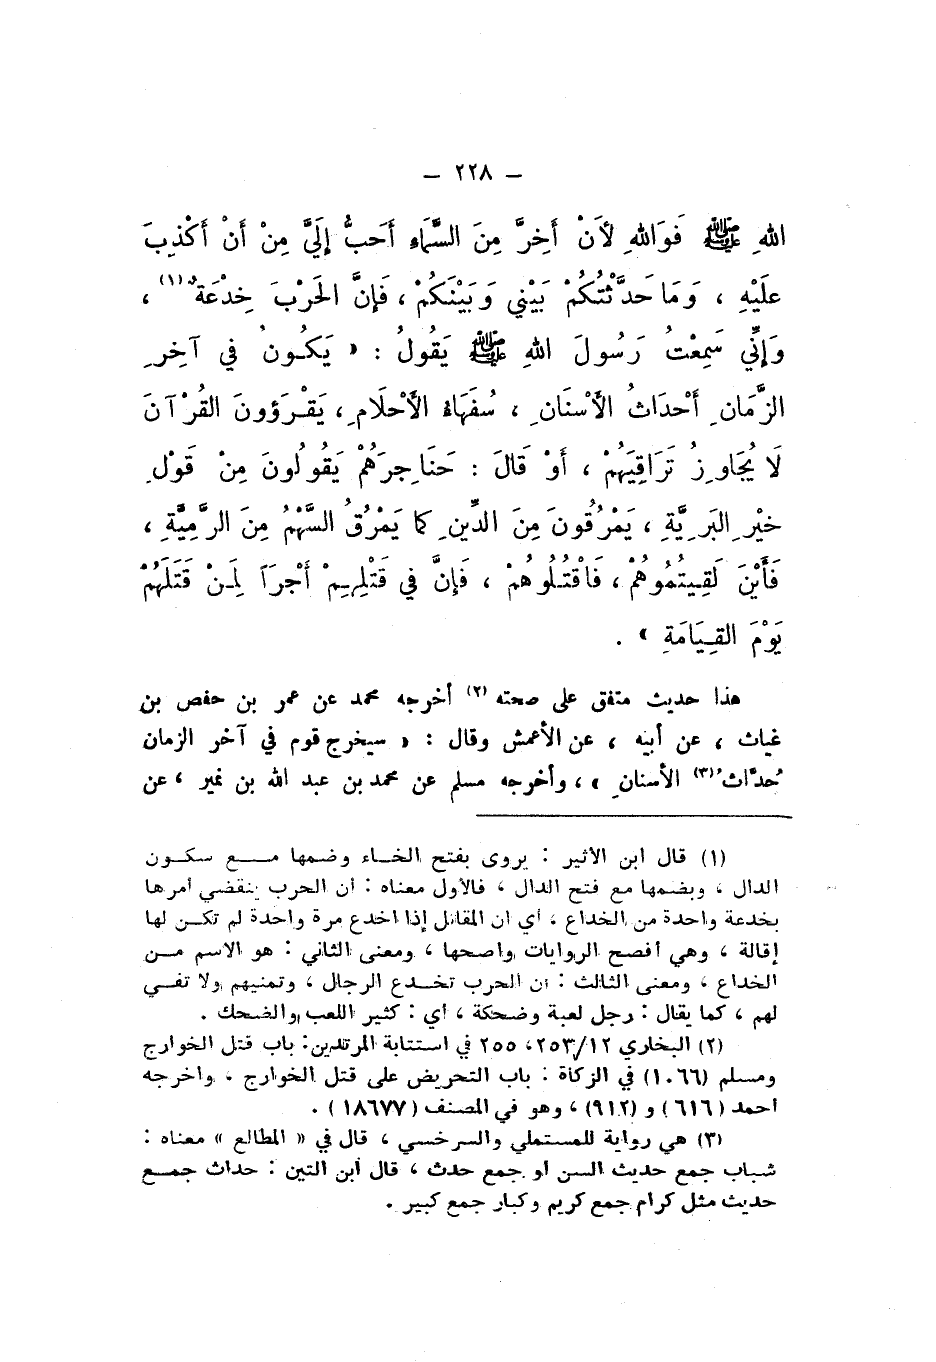 — ٢٢٨ —
اللهِ ﷺ فَوَاللهِ لأَنْ أَخِرَّ مِنَ السَّمَاءِ أَحَبُّ إِلَيَّ مِنْ أَنْ أَكْذِبَ
عَلَيْهِ ، وَمَا حَدَّثْتُكُمْ بَيْنِي وَبَيْنَكُمْ ، فَإِنَّ الْحَرْبَ خِدْعَةٌ (١) ،
وَإِنِّي سَمِعْتُ رَسُولَ اللهِ ﷺ يَقُولُ : « يَكُونُ في آخِرِ
الزَّمَانِ أَحْدَاثُ الأَسْنَانِ ، سُفَهَاءُ الأَحْلَامِ ، يَقْرَؤُونَ القُرْآنَ
لَا يُجَاوِزُ تَرَاقِيَهُمْ ، أَوْ قَالَ : حَنَاجِرَهُمْ يَقُولُونَ مِنْ قَوْلِ
خَيْرِ البَرِيَّةِ ، يَمْرُقُونَ مِنَ الدِّينِ كَمَا يَمْرُقُ السَّهْمُ مِنَ الرَّمِيَّةِ ،
فَأَيْنَ لَقِيتُمُوهُمْ ، فَاقْتُلُوهُمْ ، فَإِنَّ في قَتْلِهِمْ أَجْرَاً لِمَنْ قَتَلَهُمْ
يَوْمَ القِيَامَةِ » .
هذا حديث متفق على صحته (٢) أخرجه محمد عن عمر بن حفص بن
غياث ، عن أبيه ، عن الأعمش وقال : « سيخرج قوم في آخر الزمان
حُدَّاثُ (٣) الأسنانِ » ، وأخرجه مسلم عن محمد بن عبد الله بن نمير ، عن
(١) قال ابن الأثير : يروى بفتح الخاء وضمها مع سكون
الدال ، وبضمها مع فتح الدال ، فالأول معناه : أن الحرب ينقضي أمرها
بخدعة واحدة من الخداع ، أي أن المقاتل إذا خدع مرة واحدة لم تكن لها
إقالة ، وهي أفصح الروايات وأصحها ، ومعنى الثاني : هو الاسم من
الخداع ، ومعنى الثالث : أن الحرب تخدع الرجال ، وتمنيهم ولا تفي
لهم ، كما يقال : رجل لعبة وضحكة ، أي : كثير اللعب والضحك .
(٢) البخاري ٢٥٣/١٢، ٢٥٥ في استتابة المرتدين: باب قتل الخوارج
ومسلم (١٠٦٦) في الزكاة : باب التحريض على قتل الخوارج ، وأخرجه
أحمد (٦١٦) و (٩١٢) ، وهو في المصنف (١٨٦٧٧) .
(٣) هي رواية للمستملي والسرخسي ، قال في « المطالع » معناه :
شباب جمع حديث السن أو جمع حدث ، قال ابن التين : حداث جمع
حديث مثل كرام جمع كريم وكبار جمع كبير .